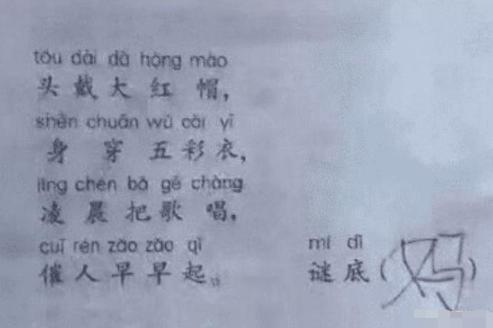 tóu dài dà hóng mào
头戴大红帽,
shēn chuān wǔ cǎi yī
身穿五彩衣,
líng chén bǎ gē chàng
凌晨把歌唱,
cuī rén zǎo zǎo qǐ mí dǐ
催人早早起。 谜底(妈)